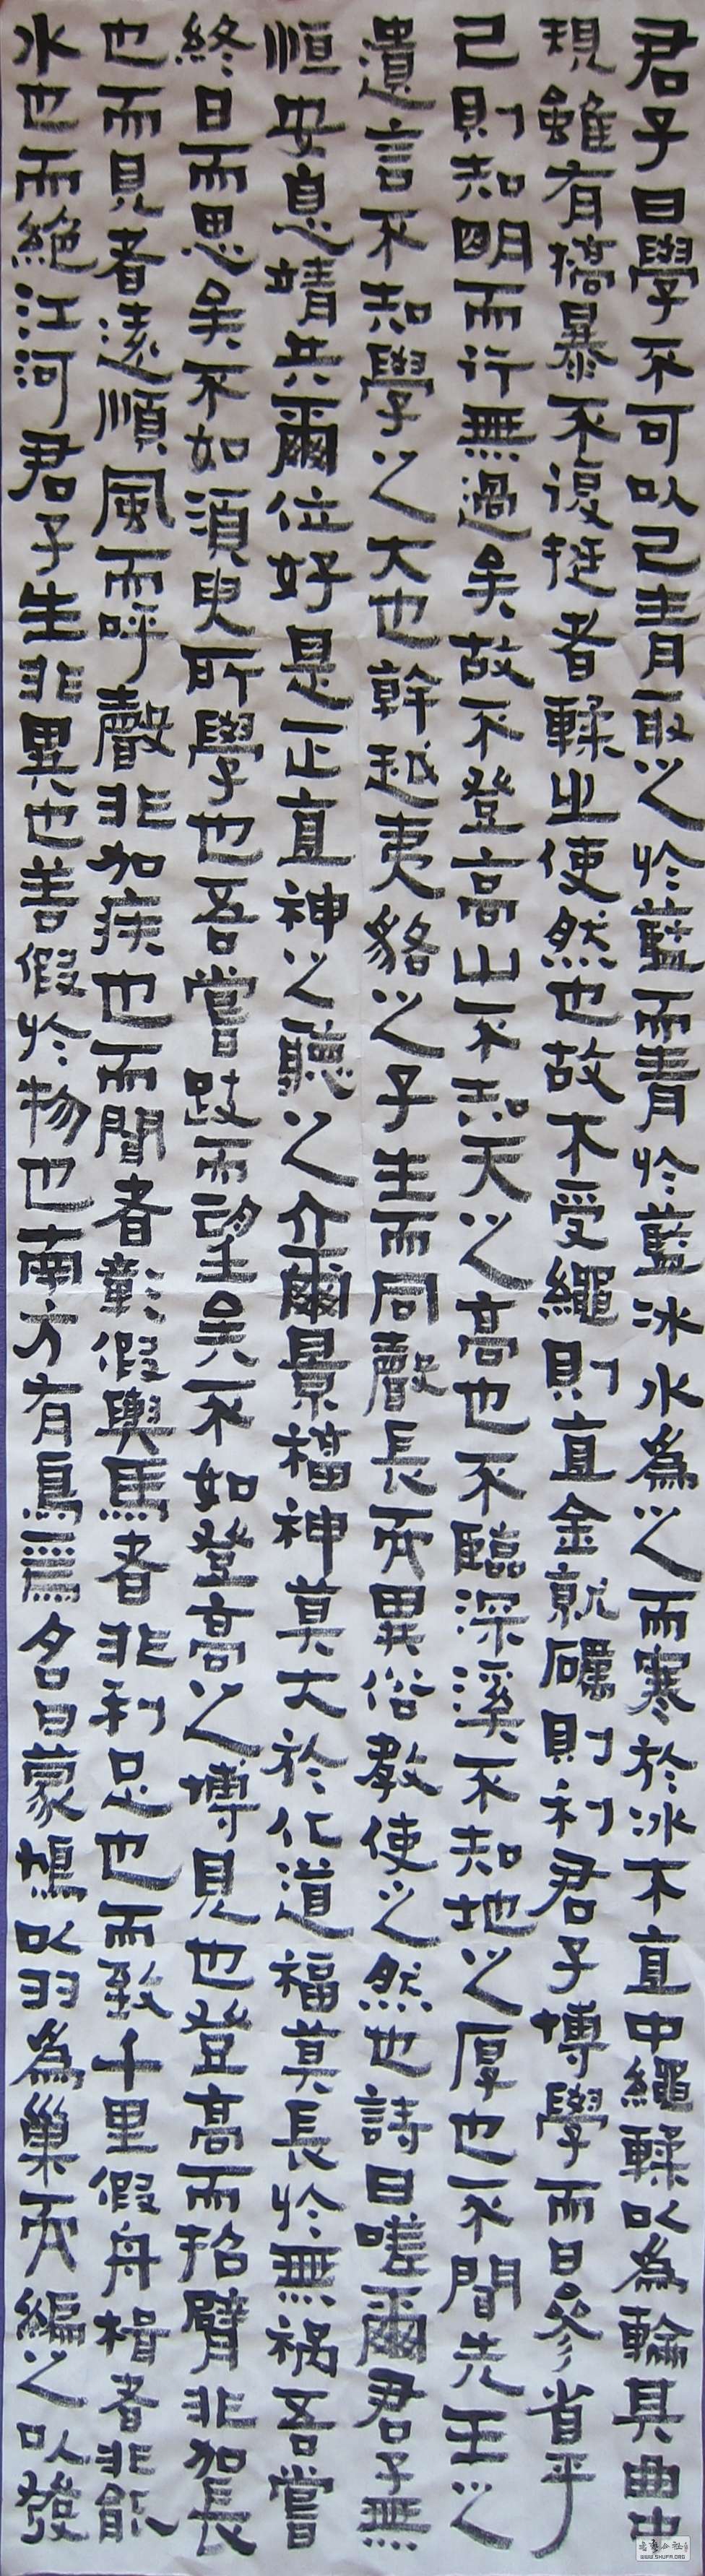 君子曰學不可以已青取之於藍而青於藍冰水為之而寒於冰木直中繩輮以為輪其曲中
規雖有槁暴不復挺者輮之使然也故木受繩則直金就礪則利君子博學而日參省乎
己則知明而行無過矣故不登高山不知天之高也不臨深溪不知地之厚也不聞先王之
遺言不知學之大也幹越夷貉之子生而同聲長而異俗教使之然也詩曰嗟爾君子無
恒安息靖共爾位好是正直神之聽之介爾景福神莫大於化道福莫長於無禍吾嘗
終日而思矣不如須臾所學也吾嘗跂而望矣不如登高之博見也登高而招臂非加長
也而見者遠順風而呼聲非加疾也而聞者彰假輿馬者非利足也而致千里假舟楫者非能
水也而絕江河君子生非異也善假於物也南方有鳥焉名曰蒙鳩以羽為巢而編之以發
WWW.SHUFA.ORG